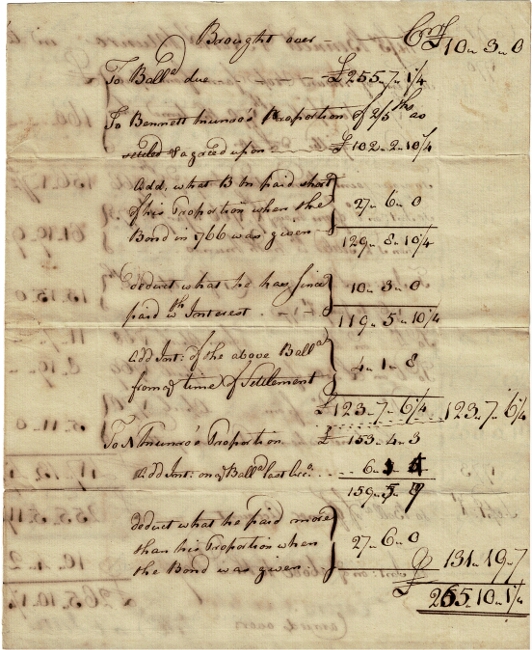 Brought over — Cr £10 „ 3 „ 0
To Ballᵃ due - - - £255 „ 7 „ 1¼
To Bennett Munro's Proportion of 2/5ths as
settled & agreed upon — £102 „ 2 „ 10¼
Add, what B M paid short
of his Proportion when the 27 „ 6 „ 0
Bond in 1766 was given
129 „ 8 „ 10¼
deduct what he has since 10 „ 3 „ 0
paid wth Interest
119 „ 5 „ 10¼
Add Int: of the above Ballᵃ 4 „ 1 „ 8
from time of Settlement
£123 „ 7 „ 6¼ 123 „ 7 „ 6¼
To N Munro's Proportion £ 153 „ 4 „ 3
Add Int: on Ballᵃ last
159 „ 5
deduct what he paid more
than his Proportion when 27 „ 6 „ 0
the Bond was given 131 „ 19 „ 7
£ 265 „ 10 „ 1¼